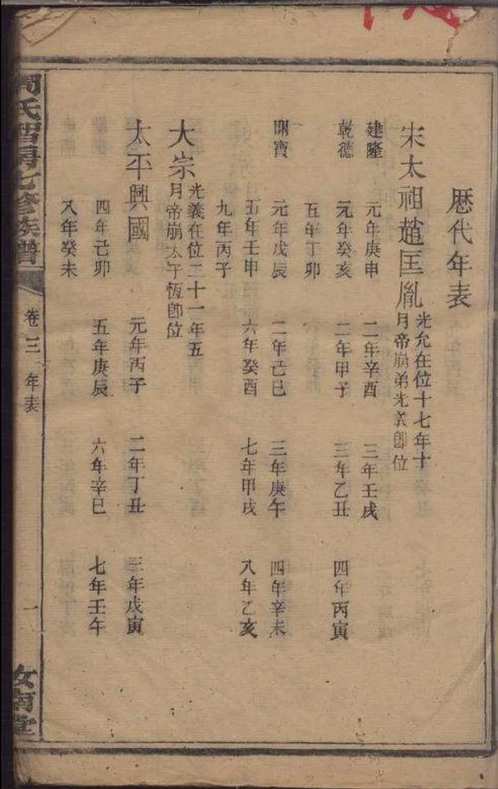 歷代年表
宋太祖趙匡胤 光允在位十七年十月帝崩弟光義即位
建隆 元年庚申 二年辛酉 三年壬戌
乾德 元年癸亥 二年甲子 三年乙丑 四年丙寅
五年丁卯
開寶 元年戊辰 二年己巳 三年庚午 四年辛未
五年壬申 六年癸酉 七年甲戌 八年乙亥
九年丙子
太宗 光義在位二十一年五月帝崩太子恆即位
太平興國 元年丙子 二年丁丑 三年戊寅
四年己卯 五年庚辰 六年辛巳 七年壬午
八年癸未
周氏四房七修族譜 卷三 年表 一 汝南堂